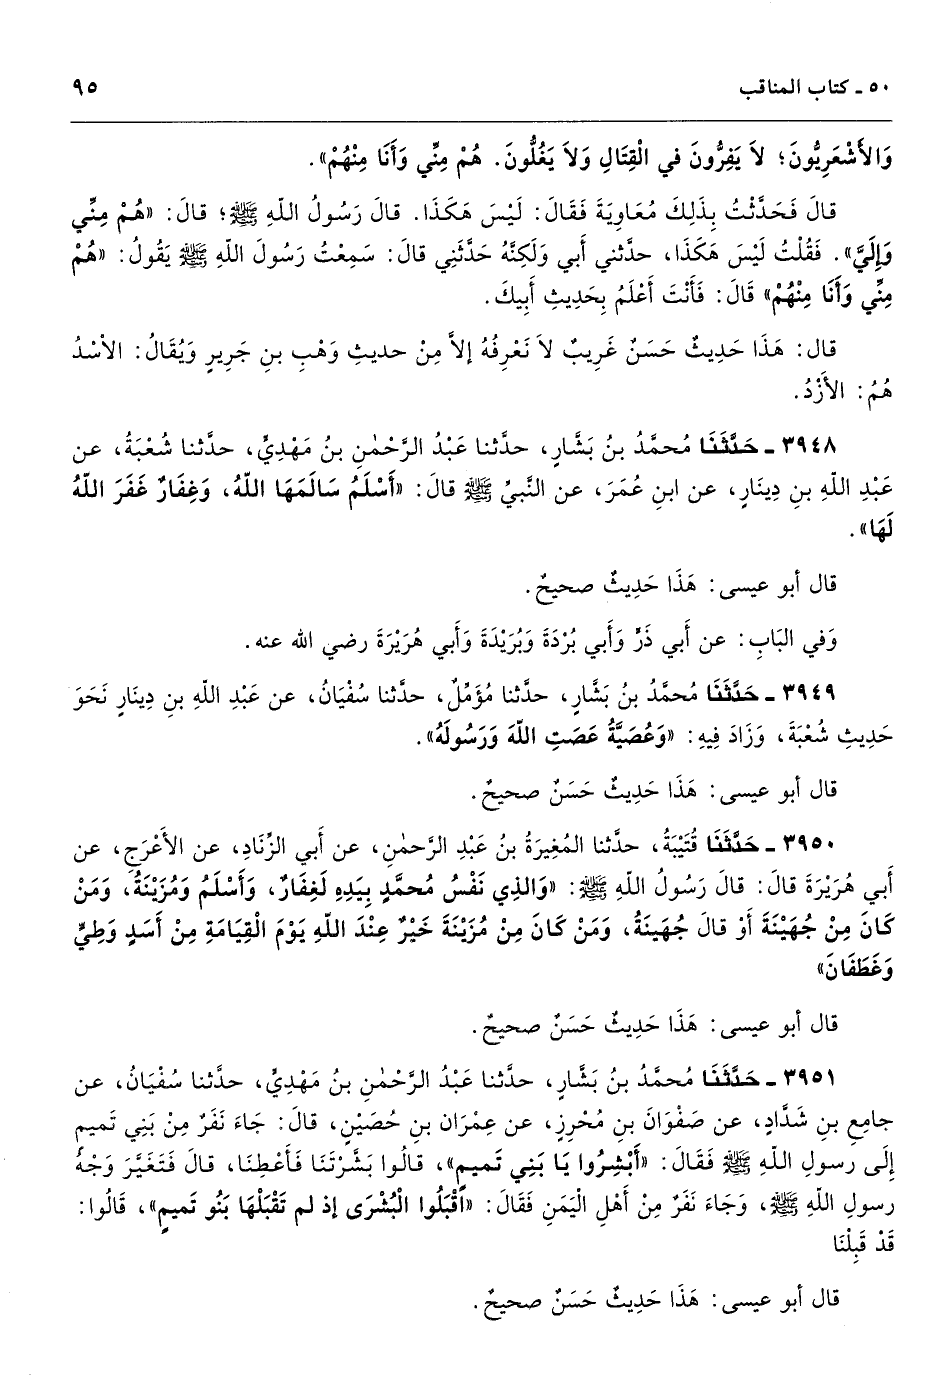 ٥٠ - كتاب المناقب ٩٥
وَالأَشْعَرِيُّونَ؛ لاَ يَفِرُّونَ في الْقِتَالِ وَلاَ يَغُلُّونَ. هُمْ مِنِّي وَأَنَا مِنْهُمْ».
قالَ فَحَدَّثْتُ بِذَلِكَ مُعَاوِيَةَ فَقَالَ: لَيْسَ هَكَذَا. قالَ رَسُولُ اللهِ ﷺ؛ قالَ: «هُمْ مِنِّي
وَإِلَيَّ». فَقُلْتُ لَيْسَ هَكَذَا، حدَّثني أبي وَلَكِنَّهُ حَدَّثَنِي قالَ: سَمِعْتُ رَسُولَ اللهِ ﷺ يَقُولُ: «هُمْ
مِنِّي وَأَنَا مِنْهُمْ» قَالَ: فَأَنْتَ أَعْلَمُ بِحَدِيثِ أَبِيكَ.
قال: هَذَا حَدِيثٌ حَسَنٌ غَرِيبٌ لاَ نَعْرِفُهُ إلاَّ مِنْ حديثِ وَهْبِ بنِ جَريرٍ وَيُقَالُ: الأسْدُ
هُمُ: الأَزْدُ.
٣٩٤٨ - حَدَّثَنَا مُحمَّدُ بنُ بَشَّارٍ، حدَّثنا عَبْدُ الرَّحْمٰنِ بنُ مَهْدِيٍّ، حدَّثنا شُعْبَةُ، عن
عَبْدِ اللهِ بنِ دِينَارٍ، عن ابنِ عُمَرَ، عن النَّبيِّ ﷺ قالَ: «أَسْلَمُ سَالَمَهَا اللهُ، وَغِفَارٌ غَفَرَ اللهُ
لَهَا».
قال أبو عيسى: هَذَا حَدِيثٌ صحيحٌ.
وَفي البَابِ: عن أبي ذَرٍّ وَأبي بُرْدَةَ وَبُرَيْدَةَ وَأبي هُرَيْرَةَ رضي الله عنه.
٣٩٤٩ - حَدَّثَنَا مُحمَّدُ بنُ بَشَّارٍ، حدَّثنا مُؤَمِّلٌ، حدَّثنا سُفْيَانُ، عن عَبْدِ اللهِ بنِ دِينَارٍ نَحَوَ
حَدِيثِ شُعْبَةَ، وَزَادَ فِيهِ: «وَعُصَيَّةُ عَصَتِ اللهَ وَرَسُولَهُ».
قال أبو عيسى: هَذَا حَدِيثٌ حَسَنٌ صحيحٌ.
٣٩٥٠ - حَدَّثَنَا قُتَيْبَةُ، حدَّثنا المُغِيرَةُ بنُ عَبْدِ الرَّحمٰنِ، عن أبي الزِّنَادِ، عن الأعْرَجِ، عن
أبي هُرَيْرَةَ قالَ: قالَ رَسُولُ اللهِ ﷺ: «وَالذِي نَفْسُ مُحمَّدٍ بِيَدِهِ لَغِفَارٌ، وَأَسْلَمُ وَمُزَيْنَةُ، وَمَنْ
كَانَ مِنْ جُهَيْنَةَ أَوْ قالَ جُهَينَةُ، وَمَنْ كَانَ مِنْ مُزَيْنَةَ خَيْرٌ عِنْدَ اللهِ يَوْمَ الْقِيَامَةِ مِنْ أَسَدٍ وَطيٍّ
وَغَطَفَانَ»
قال أبو عيسى: هَذَا حَدِيثٌ حَسَنٌ صحيحٌ.
٣٩٥١ - حَدَّثَنَا مُحمَّدُ بنُ بَشَّارٍ، حدَّثنا عَبْدُ الرَّحْمٰنِ بنُ مَهْدِيٍّ، حدَّثنا سُفْيَانُ، عن
جامِعِ بنِ شَدَّادٍ، عن صَفْوَانَ بنِ مُحْرِزٍ، عن عِمْرَان بنِ حُصَيْنٍ، قالَ: جَاءَ نَفَرٌ مِنْ بَنِي تَميم
إِلَى رسولِ اللهِ ﷺ فَقَالَ: «أَبْشِرُوا يَا بَنِي تَميمٍ»، قَالُوا بَشَّرْتَنَا فَأَعْطِنَا، قالَ فَتَغَيَّرَ وَجْهُ
رسولِ اللهِ ﷺ، وَجَاءَ نَفَرٌ مِنْ أهْلِ الْيَمَنِ فَقَالَ: «أَقْبَلُوا الْبُشْرَى إذ لم تَقْبَلْهَا بَنُو تَميمٍ»، قَالُوا:
قَدْ قَبِلْنَا
قال أبو عيسى: هَذَا حَدِيثٌ حَسَنٌ صحيحٌ.